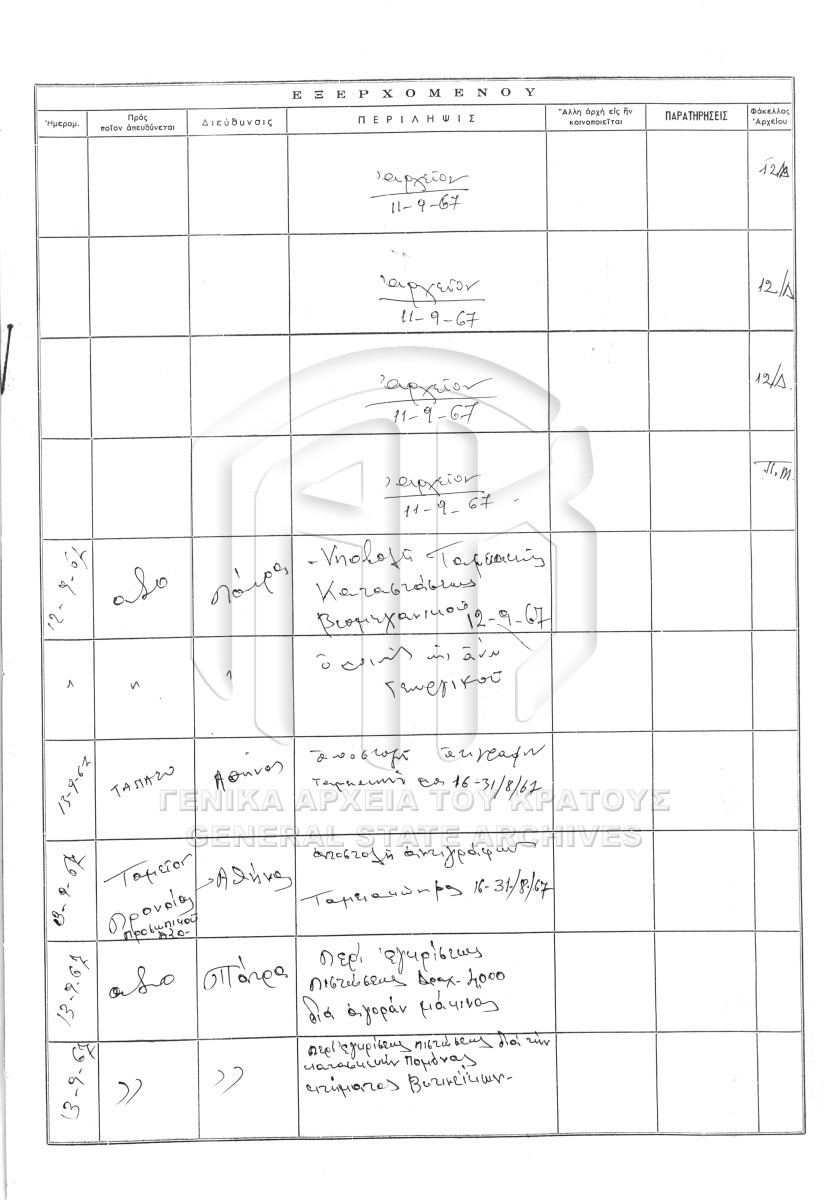 ΕΞΕΡΧΟΜΕΝΟΥ
Ἡμερομ.
Πρὸς
ποῖον ἀπευθύνεται
Διεύθυνσις
ΠΕΡΙΛΗΨΙΣ
Ἄλλη ἀρχή εἰς ἣν
κοινοποιεῖται
ΠΑΡΑΤΗΡΗΣΕΙΣ
Φάκελλος
Ἀρχείου
ἀρχεῖον
11-9-67
12/Δ
ἀρχεῖον
11-9-67
12/Δ
ἀρχεῖον
11-9-67
12/Δ.
ἀρχεῖον
11-9-67
Π.Μ.
12-9-67
ΑΣΟ
Πάτρας
- Ὑποβολὴ Ταμειακῆς
Καταστάσεως
Βιομηχανικοῦ 12-9-67
"
"
"
ὡς ἄνω
Γεωργικοῦ
13-9-67
ΤΑΠΑΣΟ
Ἀθήνας
ἀποστολὴ ἀντιγράφων
16-31/8/67
13-9-67
Ταμεῖον
Προνοίας
Προσωπικοῦ
ΑΣΟ-
Ἀθήνας
ἀποστολὴ ἀντιγράφων
16-31/8/67
13-9-67
ΑΣΟ
Πάτρας
Περὶ ἐγκρίσεως
πιστώσεως Δραχ. 4000
διὰ ἀγορὰν μάκινας
13-9-67
"
"
Περὶ ἐγκρίσεως πιστώσεως διὰ τὴν
κατασκευὴν Πομόνας
κτίματος Βυτινεΐκων-
ΓΕΝΙΚΑ ΑΡΧΕΙΑ ΤΟΥ ΚΡΑΤΟΥΣ
GENERAL STATE ARCHIVES